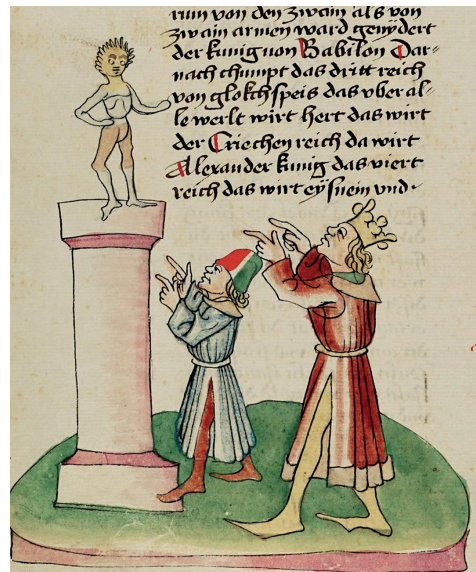 rum von den zwain als von
zwain armen ward genydert
der kunig von Babilon Dar-
nach chumpt das dritt reich
von glokhspeis das vber al-
le werlt wirt hert das wirt
der Criechen reich da wirt
Allexander kunig das viert
reich das wirt eysnein vnd